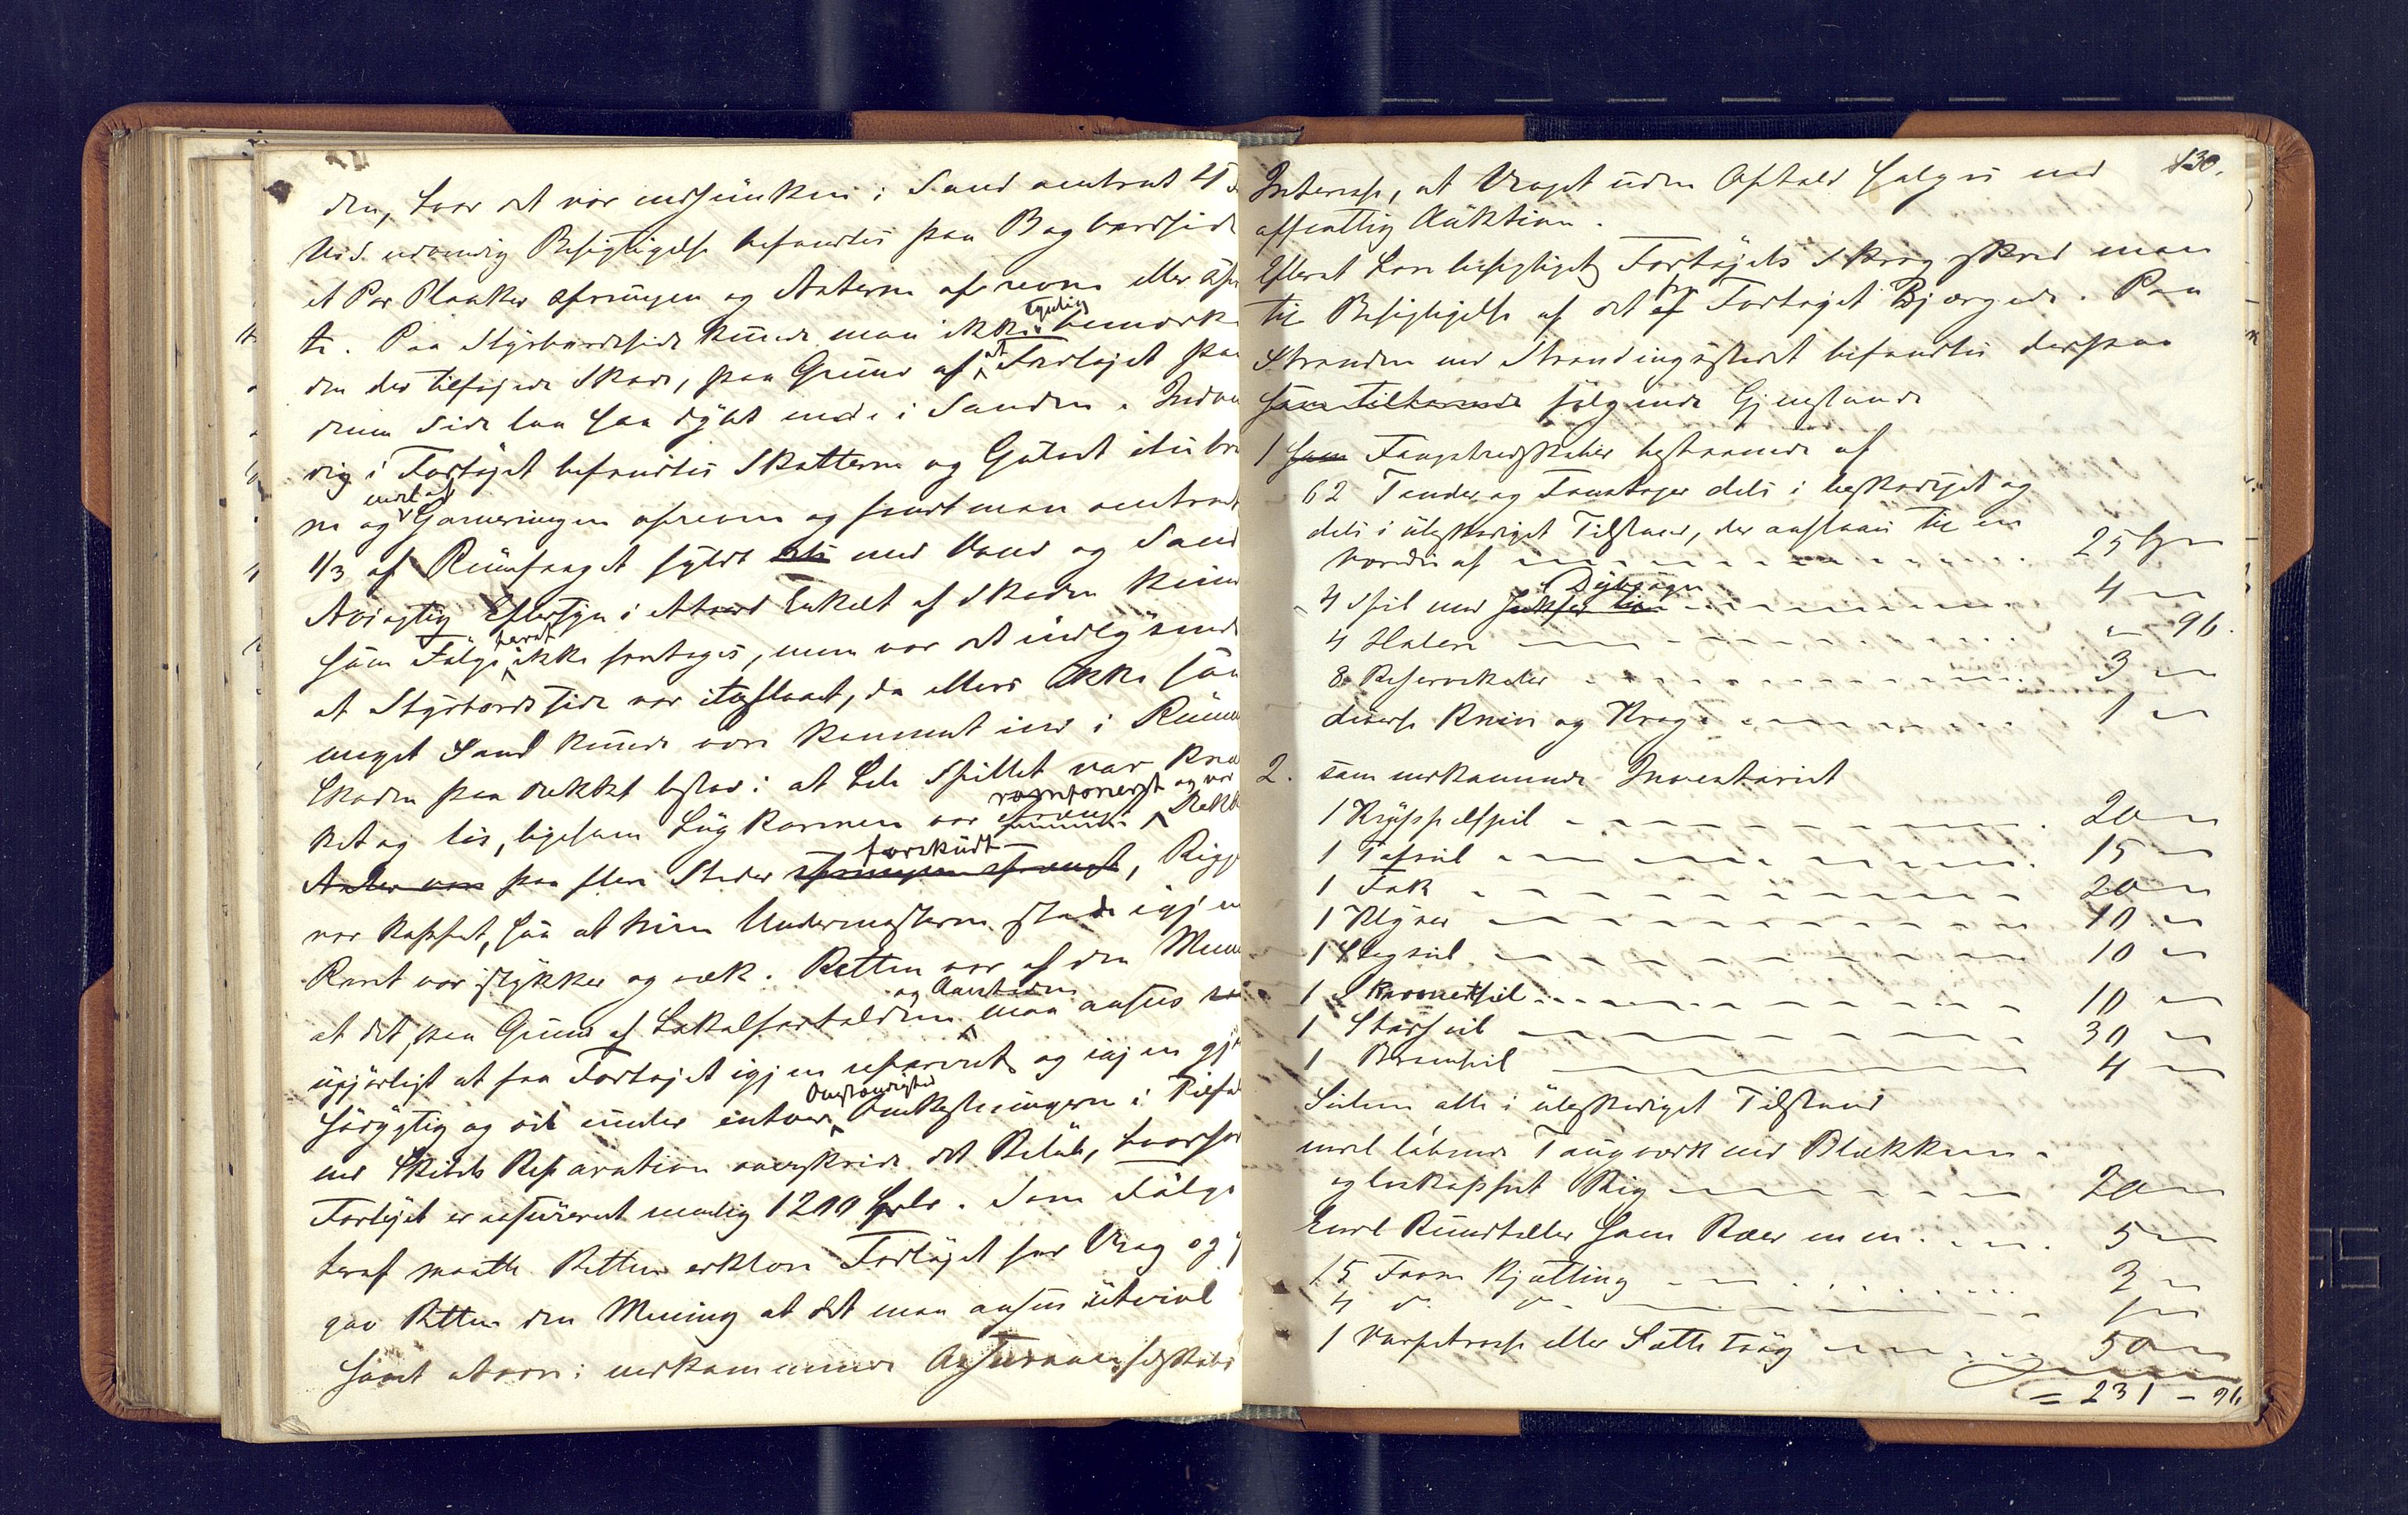 den, hvor det var nedsunken i Sand omtrent
Ved udvendig Besigtigelse befandtes paa Bagbordside
et Par Planker afrevgen og Naterne afrevne eller
te. Paa Styrbordside kunde man ikke tydelig bemærke
den der tilføiede Skade, paa Grund af at Fartøjet paa
denne Side laa saa dybt nede i Sanden. Indven
dig i Fartøjet befandtes Skotterne og Gulvet itubru
ne og endel af Garneringen afreven og fandt man omtrent
1/3 af Rumfanget fyldt med Vand og Sand
Nøiagtig Eftersyn i Enkelt af Skaden kunde
som Følge heraf ikke foretages, men var det indlysende
at Styrbordsside var istykslaaet, da ellers ikke saa
meget Sand kunde være kommet ind i Rummet
Skaden paa Dækket bestod i at hele Spillet var knæk
ket og løs, ligesom Lugkarmen var ramponeret og var Dækket
paa flere Steder forskudt, Riggen
var kappet, saa at kun Undermasterne stode igjen
Roret var istykker og væk. Retten var af den Mening
at det, paa Grund af Lokalforholdene og Aarstiden maa ansees
ugjørligt at faa Fartøjet igjen repareret og igjen gjort
søgygtig og vil under enhver Omstændighed Omkostningerne i Tilfælde
med Skibets Reparation overskride det Beløb, hvorfor
Fartøjet er assureret nemlig 1200 Spdlr. Som Følge
heraf maatte Retten erklære Fartøjet for Vrag og
gav Retten den Mening at det maa ansees utvivl
somt at være i vedkommende Assuranceselskabs
130.
Interesse, at Vraget uden Ophold sælges ved
offentlig Auktion.
Efterat have besigtiget Fartøjets Skrog skred man
til Besigtigelse af det fra Fartøjet Bjærgede. Paa
Stranden ved Strandingsstedet befandtes derpaa
følgende Gjenstande
1 Fangstredskaber bestaaende af
62 Tønder og Fanetager dels i beskadiget og
dels i ubeskadiget Tilstand, der ansloges til en
Værdi af - - - 25 Spd
4 Spil med Dybsagn - - - 4 "
4 Haler - - - " 96.
8 Reservekeler - - - 3 "
diverse Knive og Krog - - - 1 "
2. som vedkommende Inventariet
1 Krydsseil - - - 20 "
1 Topseil - - - 15 "
1 Fok - - - 20 "
1 Klyver - - - 10 "
1 Stagseil - - - 10 "
1 Skonnertseil - - - 10 "
1 Storseil - - - 30 "
1 Bramseil - - - 4 "
Seilene alle i ubeskadiget Tilstand
endel løbende Taugværk med Blokkene
og løskappet Rig - - - 20 "
Endel Rundholter som Ræer m m. - - - 5 "
15 Favne Kjætting - - - 2 "
4 do do - - - 1 "
1 Varpetrosse eller Slættoug - - - 50 "
= 231 - 96